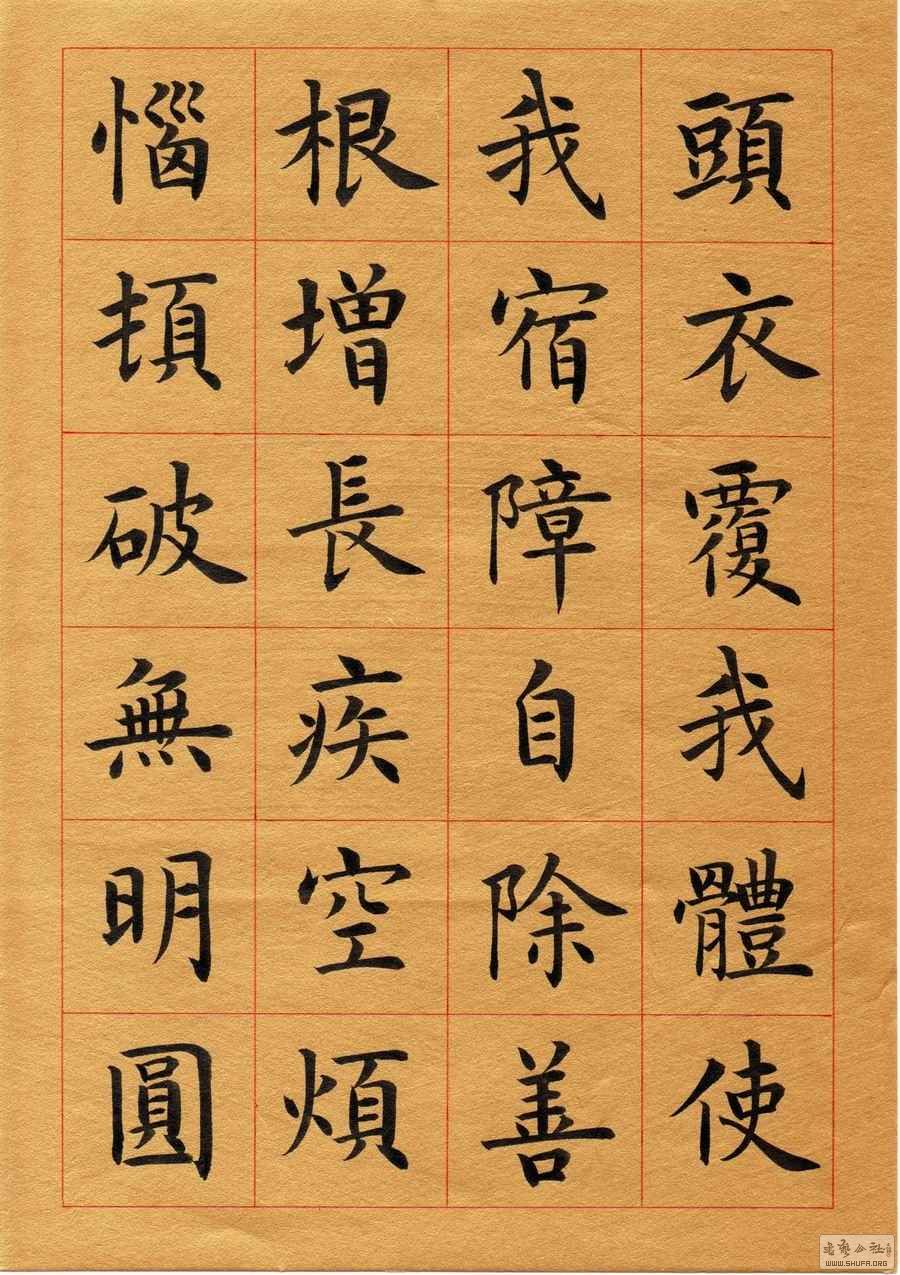 頭衣覆我體使
我宿障自除善
根增長疾空煩
惱頓破無明圓
WWW.SHUFA.ORG